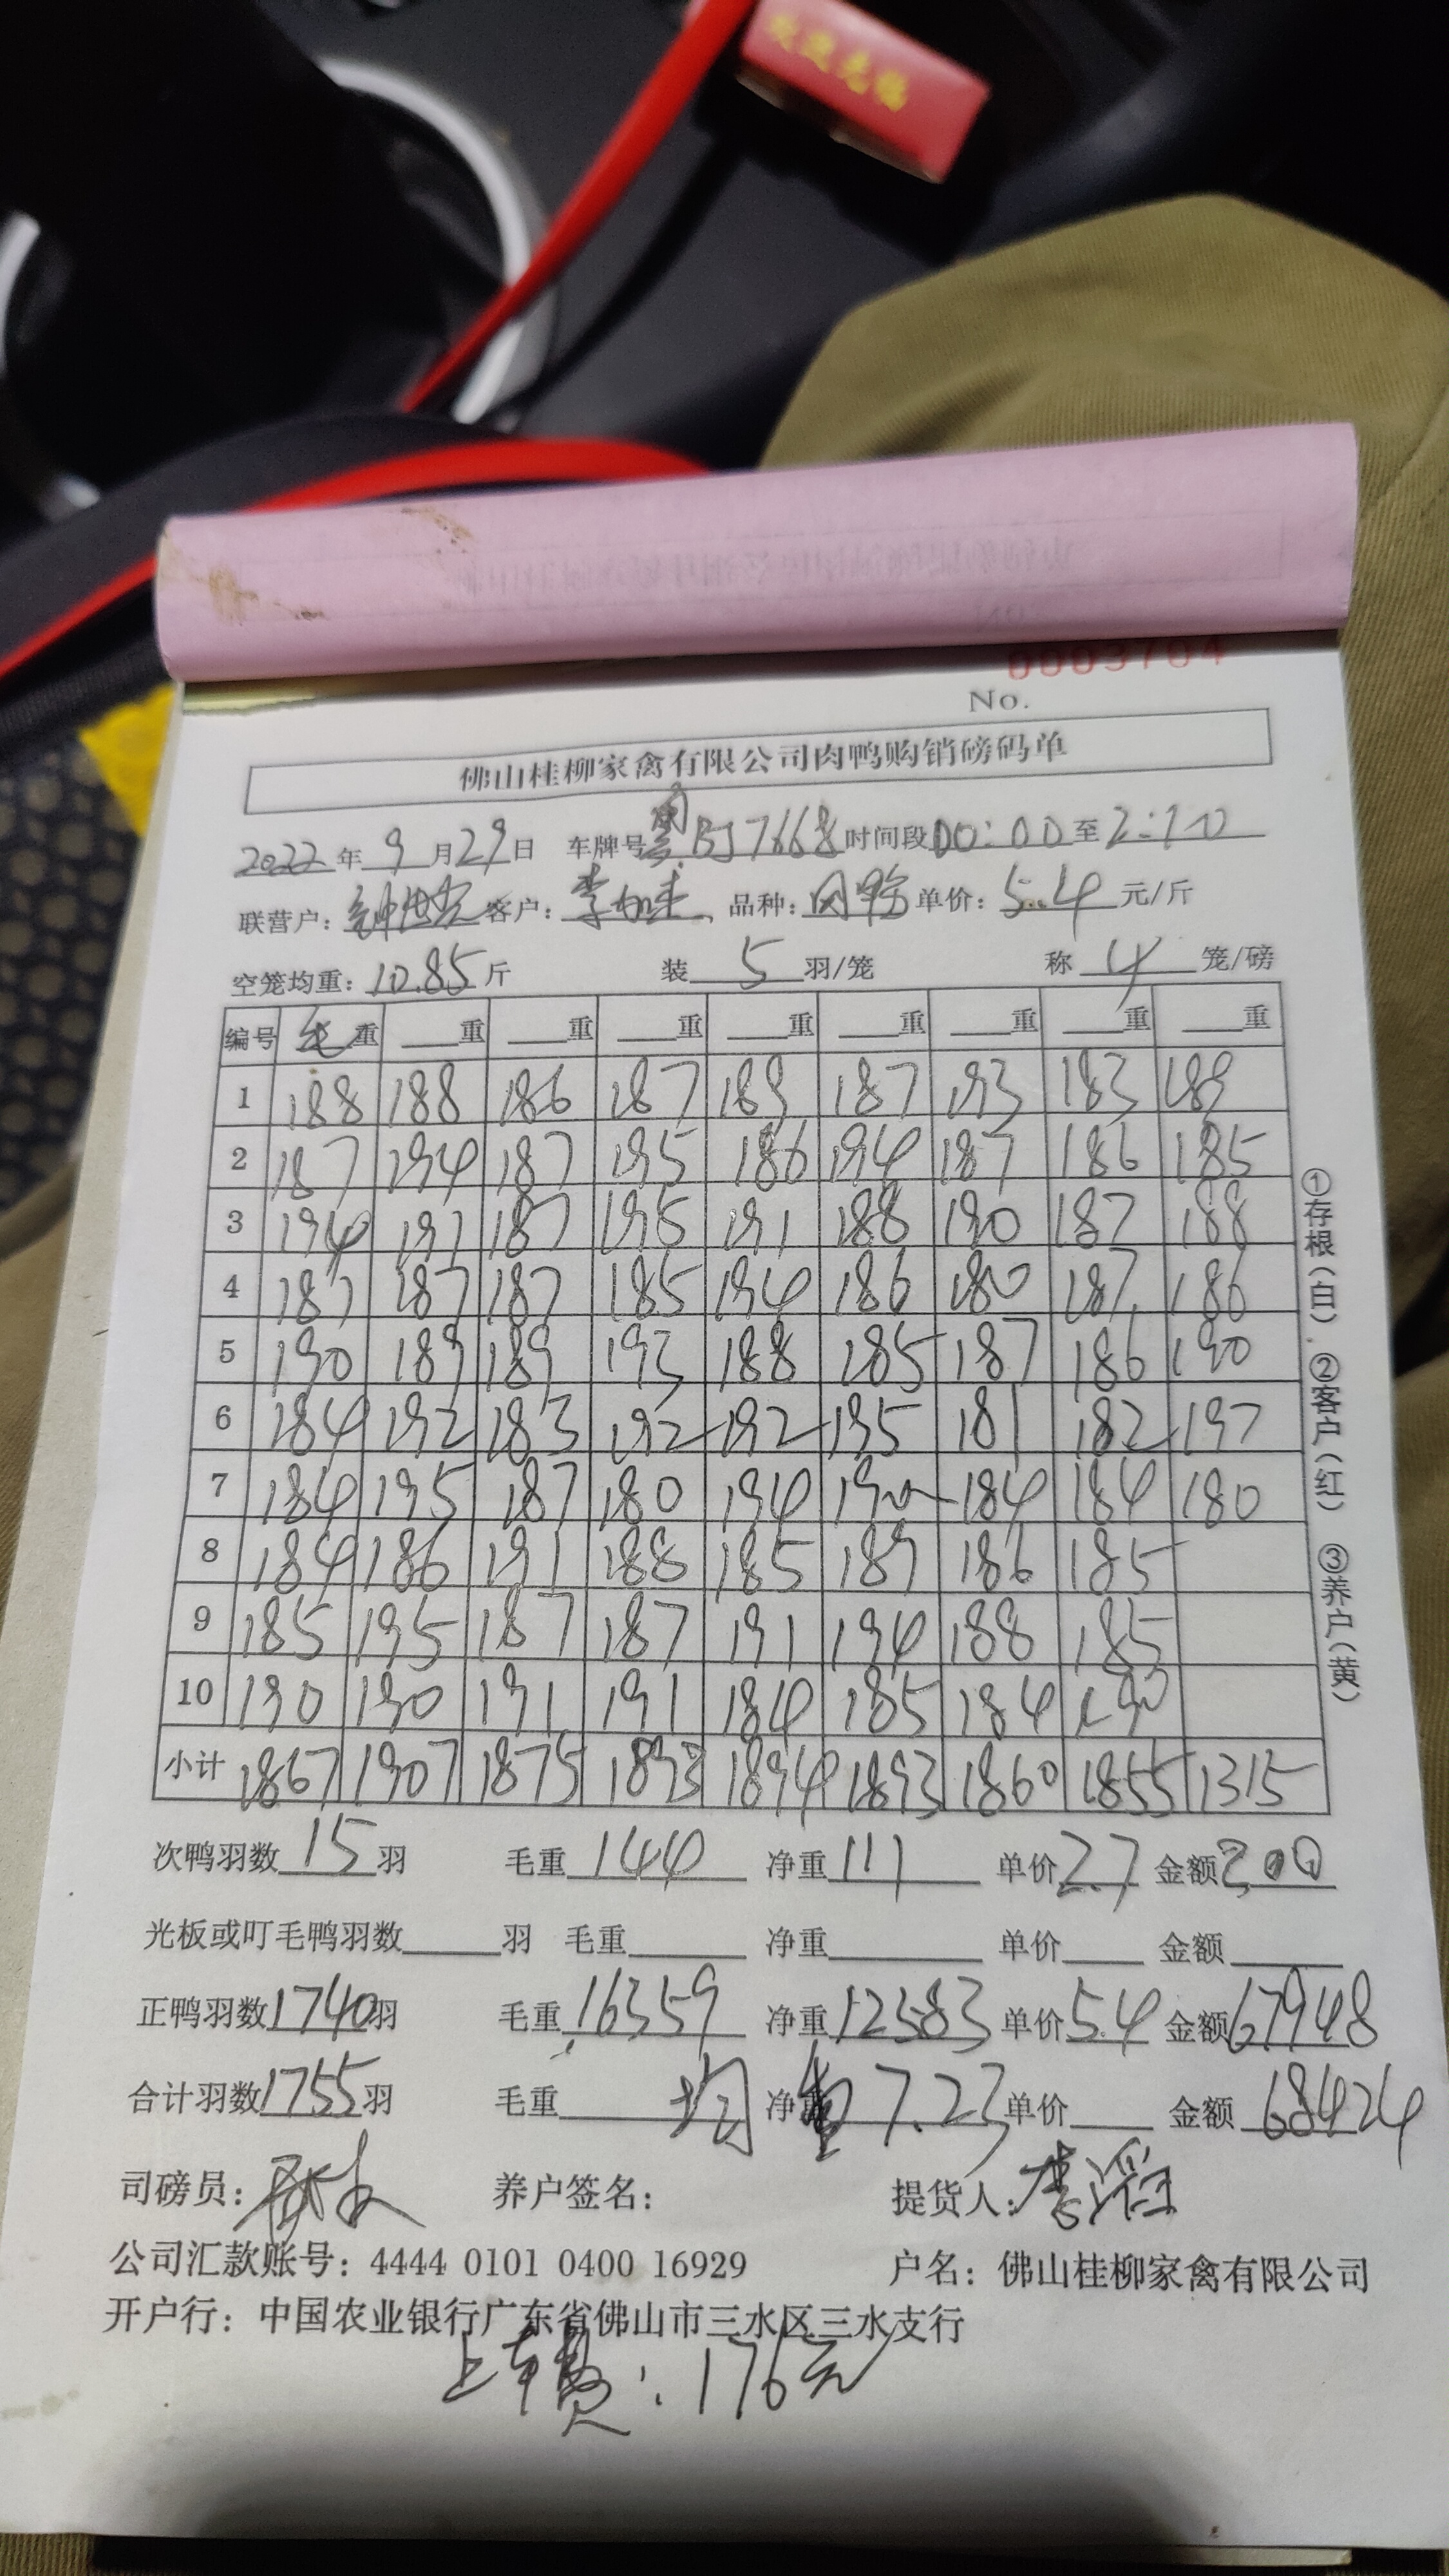 欢迎光临
0003704
No.
佛山桂柳家禽有限公司肉鸭购销磅码单
2022 年 9 月 29 日 车牌号 粤BJ7668 时间段 00:00 至 2:10
联营户: 客户: 李加来 品种: 单价: 5.4 元/斤
空笼均重: 10.85 斤 装 5 羽/笼 称 4 笼/磅
编号 毛重 重 重 重 重 重 重 重 重
1 188 188 186 187 189 187 193 183 189
2 187 194 187 195 186 194 187 186 185
3 194 191 187 195 191 188 190 187 188
4 187 187 187 185 194 186 180 187 186
5 190 189 189 193 188 185 187 186 190
6 184 192 183 192 192 195 181 182 197
7 184 195 187 180 194 190 184 184 180
8 184 186 191 188 185 189 186 185
9 185 195 187 187 191 194 188 185
10 190 190 191 191 184 185 184 190
小计 1867 1907 1875 1893 1894 1893 1860 1855 1315
①存根(白) ②客户(红) ③养户(黄)
次鸭羽数 15 羽 毛重 144 净重 111 单价 2.7 金额 300
光板或叮毛鸭羽数 羽 毛重 净重 单价 金额
正鸭羽数 1740 羽 毛重 16359 净重 12583 单价 5.4 金额 67948
合计羽数 1755 羽 毛重 均 净重 7.23 单价 金额 68424
司磅员: 养户签名: 提货人: 李
公司汇款账号: 4444 0101 0400 16929 户名: 佛山桂柳家禽有限公司
开户行: 中国农业银行广东省佛山市三水区三水支行
上车费: 176元